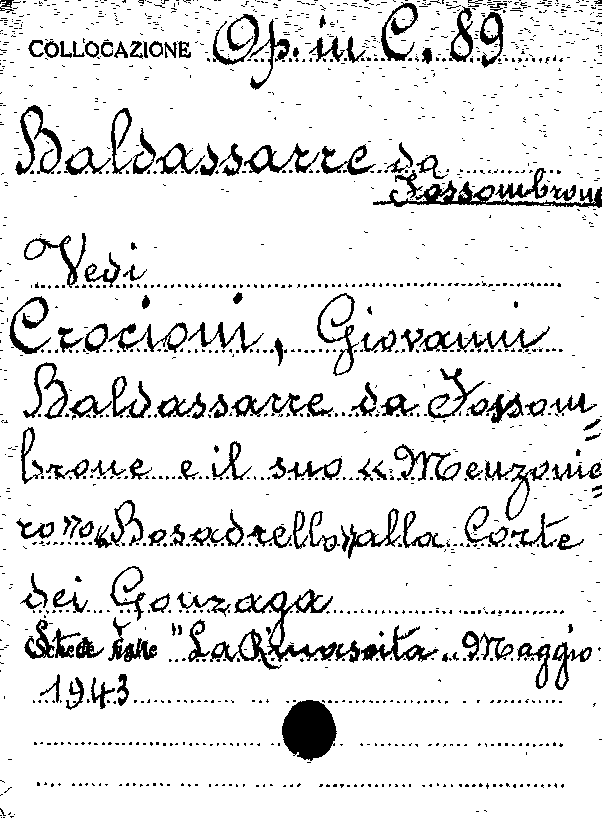 COLLOCAZIONE Op. in C. 89
Baldassarre da
Fossombrone
Vedi
Crocioni, Giovanni
Baldassarre da Fossom=
brone e il suo « Menzonie=
ro »o « Bosadrello » alla Corte
dei Gonzaga
"La Rinascita" Maggio
1943